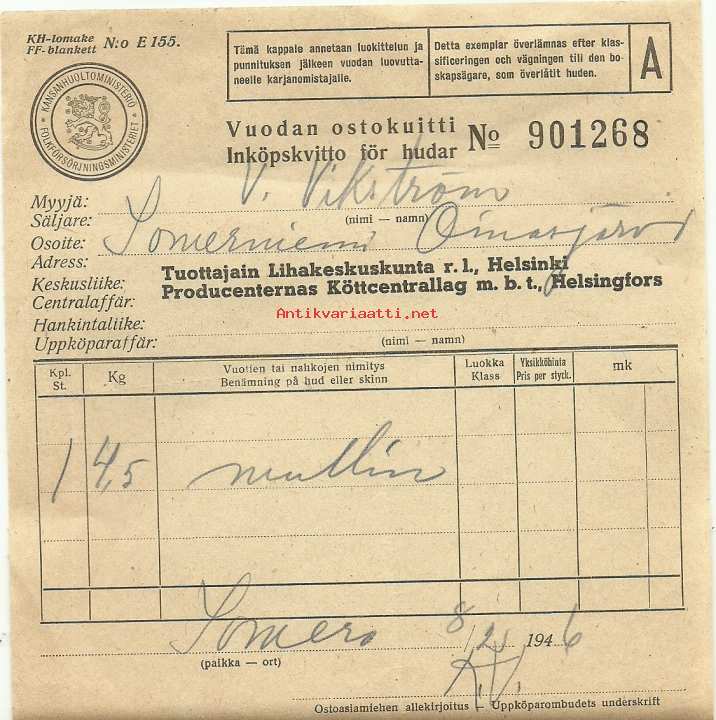 KH-lomake
FF-blankett N:o E 155.
KANSANHUOLTOMINISTERIÖ
FOLKFÖRSÖRJNINGSMINISTERIET
Tämä kappale annetaan luokittelun ja
punnituksen jälkeen vuodan luovutta-
neelle karjanomistajalle.
Detta exemplar överlämnas efter klas-
sificeringen och vägningen till den bo-
skapsägare, som överlåtit huden.
A
Vuodan ostokuitti
Inköpskvitto för hudar
No 901268
Myyjä: V. Vikström
Säljare: (nimi — namn)
Osoite: Somerniemi Oinasjärvi
Adress:
Keskusliike: Tuottajain Lihakeskuskunta r. l., Helsinki
Centralaffär: Producenternas Köttcentrallag m. b. t., Helsingfors
Antikvariaatti.net
Hankintaliike:
Uppköparaffär: (nimi — namn)
Kpl. Kg Vuotien tai nahkojen nimitys Luokka Yksikköhinta mk
St. Benämning på hud eller skinn Klass Pris per styck.
1 4,5 mullin
Somero 8/2 1946
(paikka — ort)
K.V.
Ostoasiamiehen allekirjoitus — Uppköparombudets underskrift